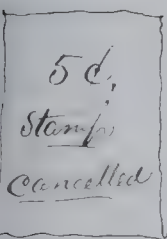 5 ¢,
Stamps
Cancelled